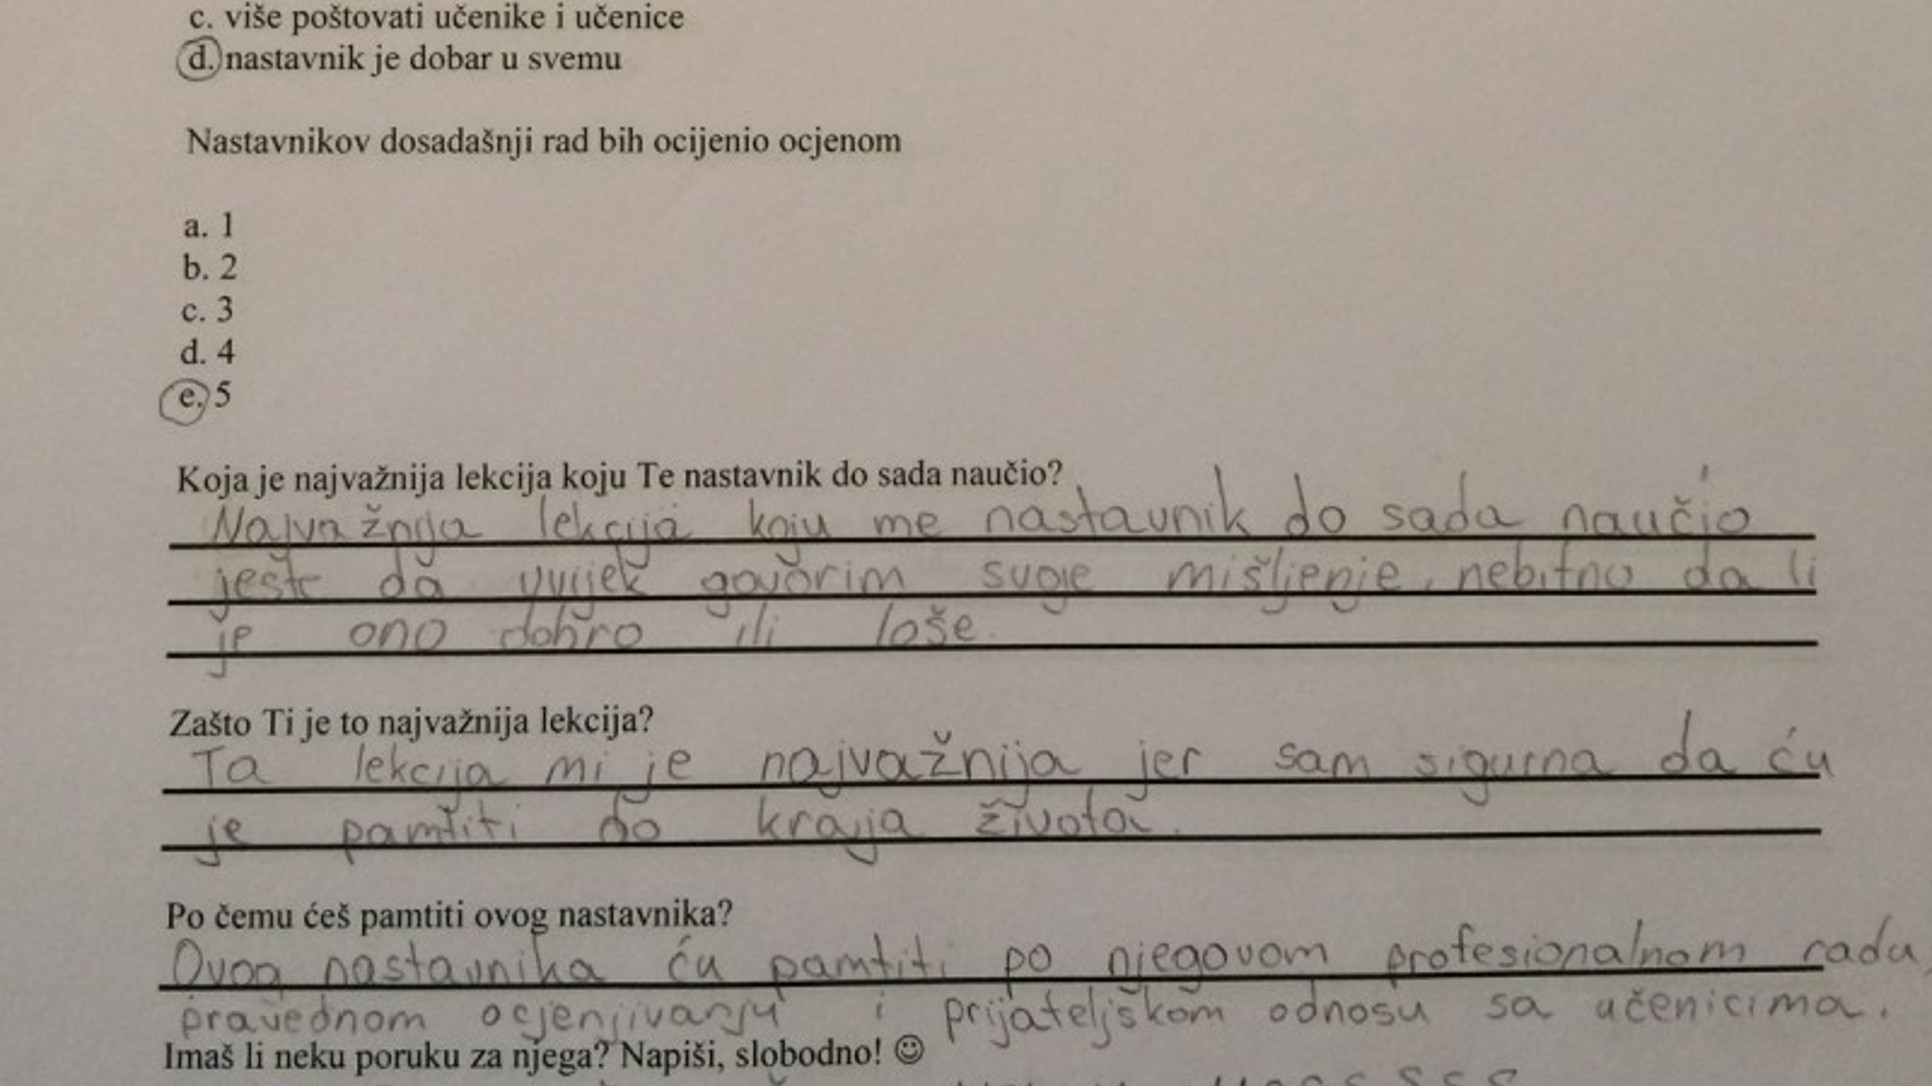 c. više poštovati učenike i učenice
d. nastavnik je dobar u svemu
Nastavnikov dosadašnji rad bih ocijenio ocjenom
a. 1
b. 2
c. 3
d. 4
e. 5
Koja je najvažnija lekcija koju Te nastavnik do sada naučio?
Najvažnija lekcija koju me nastavnik do sada naučio
jeste da uvijek govorim svoje mišljenje, nebitno da li
je ono dobro ili loše.
Zašto Ti je to najvažnija lekcija?
Ta lekcija mi je najvažnija jer sam sigurna da ću
je pamtiti do kraja života.
Po čemu ćeš pamtiti ovog nastavnika?
Ovog nastavnika ću pamtiti po njegovom profesionalnom radu,
pravednom ocjenjivanju i prijateljskom odnosu sa učenicima.
Imaš li neku poruku za njega? Napiši, slobodno! ☺